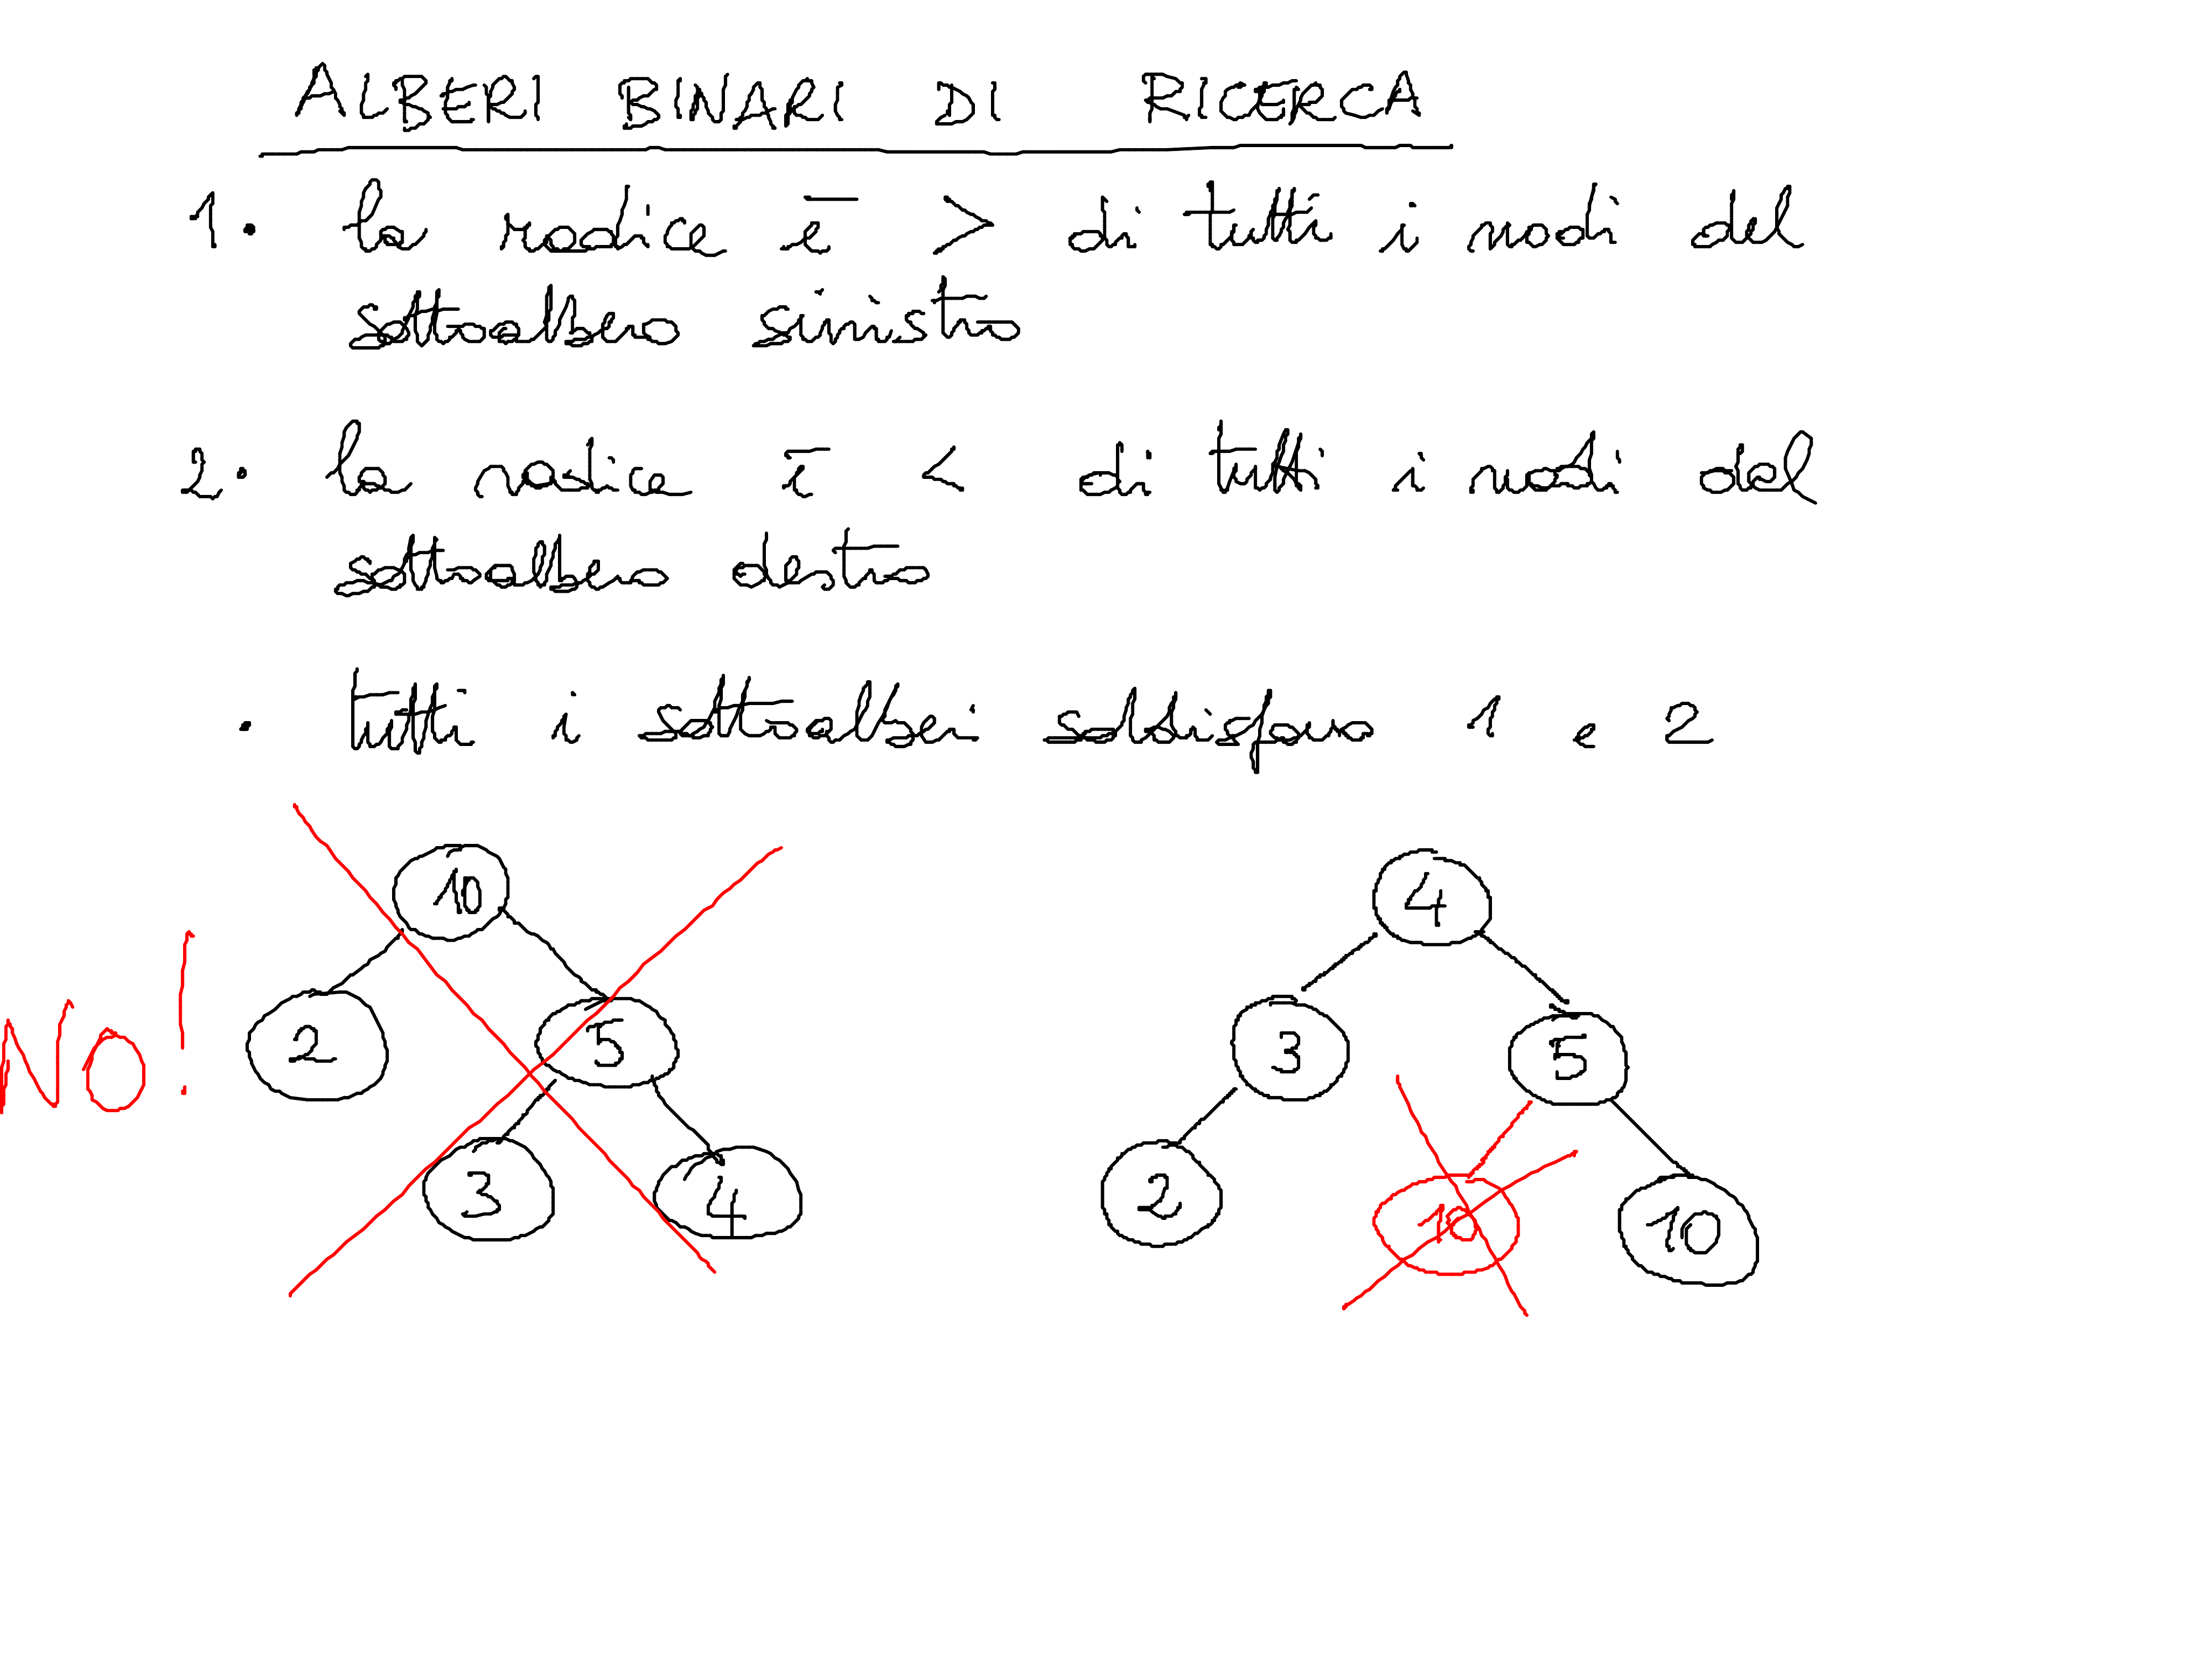 ALBERI BINARI DI RICERCA
1. la radice è > di tutti i nodi del
sottoalbero sinistro
2. la radice è < di tutti i nodi del
sottoalbero destro
. tutti i sottoalberi soddisfano 1 e 2
10
4
NO!
2
5
3
5
3
4
2
10